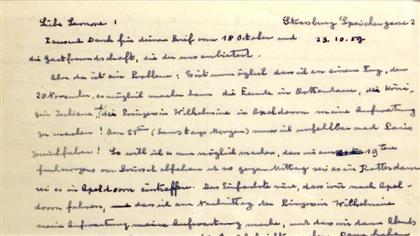 Liebe Leonore ! Strassburg Speichergasse 2
Tausend Dank für deinen Brief vom 18 Oktober und 23.10.59
die Gastfreundschaft, die du uns anbietest.
Aber da ist ein Problem: Es ist unmöglich dass ich an einem Tag, den
20 November, es möglich machen kann die Eeuwde in Rotterdam, die Köni-
gin Juliana die Prinzessin Wilhelmine in Apeldoorn meine Aufwartung
zu machen! Am 21ten (Samstags Morgen) muss ich unfehlbar nach Paris
zurückfahren! So will ich es nun möglich machen, dass wir am 19ten
frühmorgens von Brüssel abfahren et es gegen Mittag sei es in Rotterdam
sei es in Apeldoorn eintreffen. Das Einfachste wäre, dass wir nach Apel-
doorn fahren, und dass ich am Nachmittag der Prinzessin Wilhelmine
meine Aufwartung meine Aufwartung mache, und dass wir dann Abends